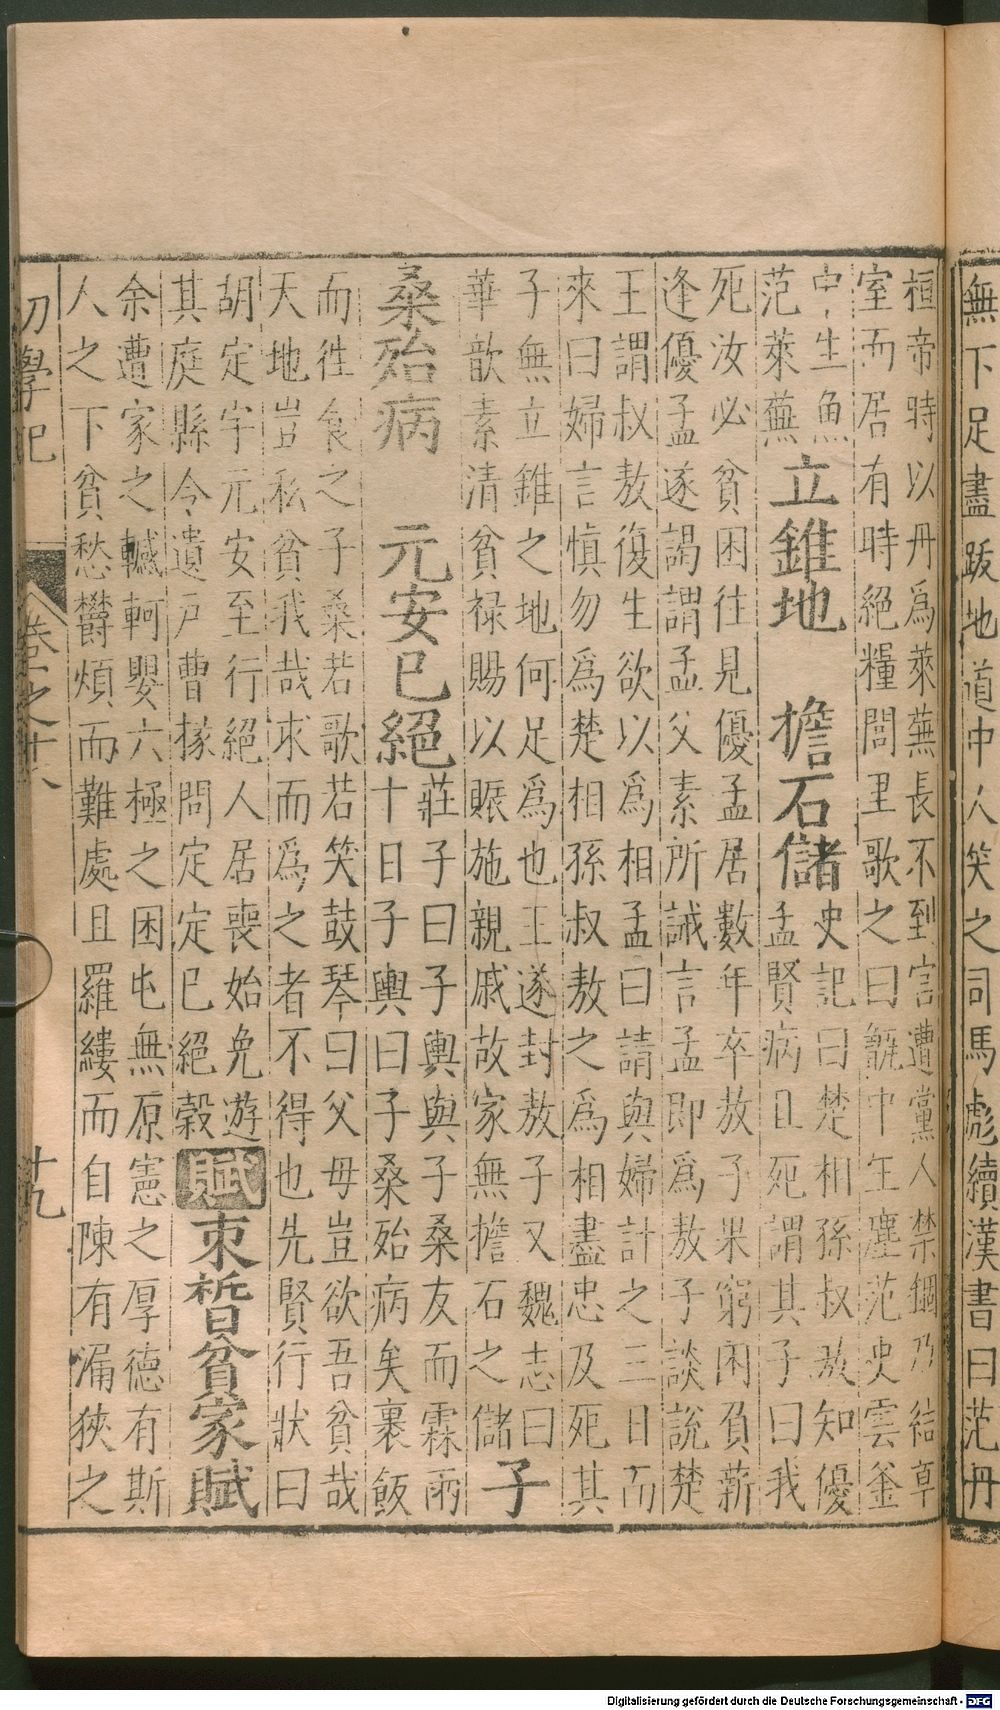 無下足盡跋地道中人笑之司馬彪續漢書曰范丹
桓帝時以丹爲萊蕪長不到官遭黨人禁錮乃結草
室而居有時絕糧閭里歌之曰甑中生塵范史雲釜
中生魚
范萊蕪
立錐地 擔石儲
史記曰楚相孫叔敖知優
孟賢病且死謂其子曰我
死汝必貧困往見優孟居數年卒敖子果窮困負薪
逢優孟遂謁謂孟父素所誡言孟即爲敖子談說楚
王謂叔敖復生欲以爲相孟曰請與婦計之三日而
來曰婦言慎勿爲楚相孫叔敖之爲相盡忠及死其
子無立錐之地何足爲也王遂封敖子又魏志曰
華歆素清貧祿賜以賑施親戚故家無擔石之儲
子
桑殆病 元安已絕
莊子曰子輿與子桑友而霖雨
十日子輿曰子桑殆病矣裹飯
而徃食之子桑若歌若笑鼓琴曰父母豈欲吾貧哉
天地豈私貧我哉求而爲之者不得也先賢行狀曰
胡定字元安至行絕人居喪始免遊
其庭縣令遺戶曹掾問定定已絕穀
賦
束晳貧家賦
余遭家之轗軻嬰六極之困屯無原憲之厚德有斯
人之下貧愁鬱煩而難處且羅縷而自陳有漏狹之
初學記
卷之十八
十九
Digitalisierung gefördert durch die Deutsche Forschungsgemeinschaft - DFG